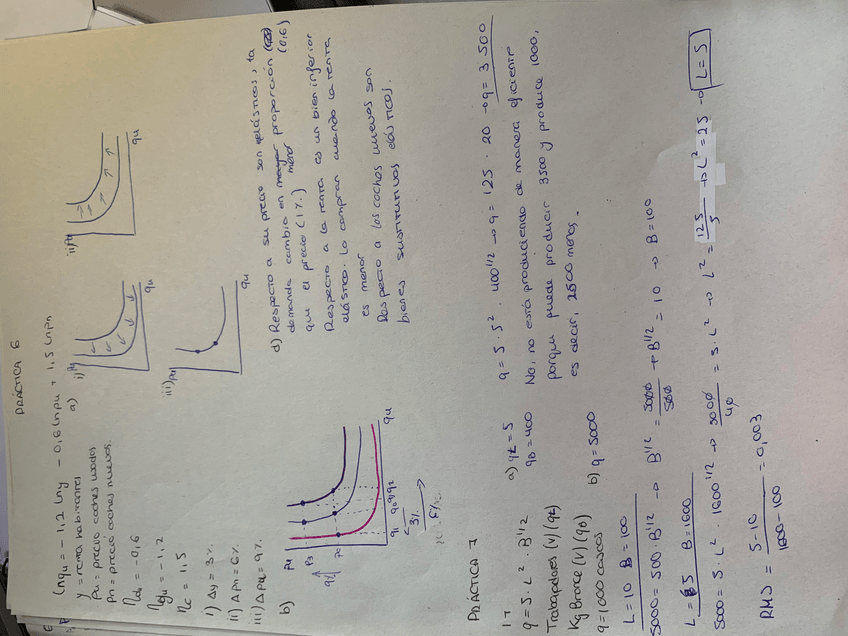 PRÁCTICA 6
lnqu = -1,2 lny - 0,6 lnpu + 1,5 lnpn
y = renta habitantes
pu = precio coches usados
pn = precio coches nuevos.
ηd = -0,6
ηy = -1,2
ηc = 1,5
i) Δy = 3%
ii) Δpn = 6%
iii) Δpu = 9%
a)
i) pu
qu
ii) pu
qu
iii) pu
qu
b)
pu
p3
p0
q1 q0 q3 q2
qu
3%
d) Respecto a su precio son inelásticos, la
demanda cambia en menor proporción (0,6)
que el precio (1%)
Respecto a la renta es un bien inferior
elástico. Lo compran cuando la renta
es menor
Respecto a los coches nuevos son
bienes sustitutivos elásticos.
PRÁCTICA 7
1+
q = 5 · L² · B^1/2
Trabajadores (V) (qL)
Kg Bronce (V) (qB)
q = 1000 cascos
a) qL = 5
qB = 400
q = 5 · 5² · 400^1/2 → q = 125 · 20 → q = 3500
No, no está produciendo de manera eficiente
porque puede producir 3500 y produce 1000,
es decir, 2500 menos.
b) q = 5000
L = 10 B = 100
5000 = 500 B^1/2 → B^1/2 = 5000/500 → B^1/2 = 10 → B = 100
L = 5 B = 1600
5000 = 5 · L² · 1600^1/2 → 5000/40 = 5 · L² → L² = 125/5 → L² = 25 → L = 5
RMS = 5-10/1600-100 = 0,003